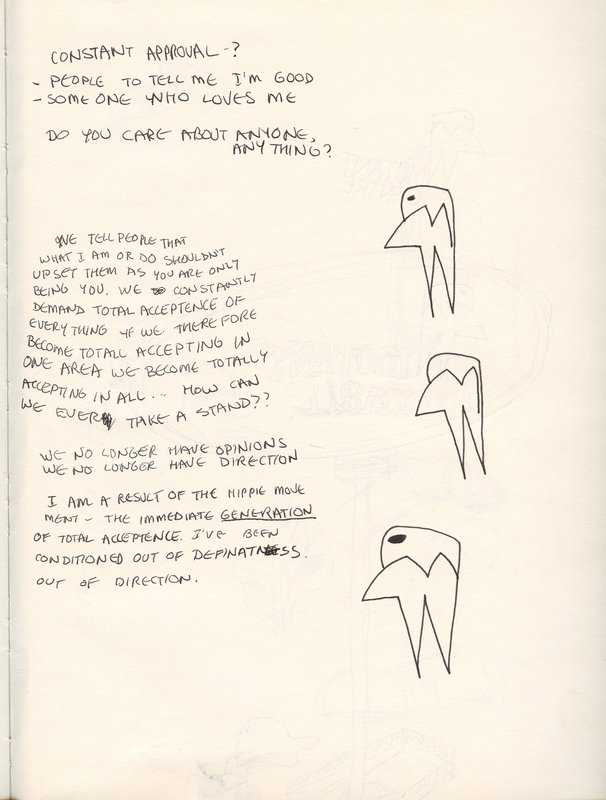 CONSTANT APPROVAL -?
- PEOPLE TO TELL ME I'M GOOD
- SOMEONE WHO LOVES ME
DO YOU CARE ABOUT ANYONE,
ANYTHING?
WE TELL PEOPLE THAT
WHAT I AM OR DO SHOULDN'T
UPSET THEM AS YOU ARE ONLY
BEING YOU. WE CONSTANTLY
DEMAND TOTAL ACCEPTENCE OF
EVERYTHING IF WE. THEREFORE
BECOME TOTALL ACCEPTING IN
ONE AREA WE BECOME TOTALLY
ACCEPTING IN ALL... HOW CAN
WE EVER TAKE A STAND??
WE NO LONGER HAVE OPINIONS
WE NO LONGER HAVE DIRECTION
I AM A RESULT OF THE HIPPIE MOVE
MENT - THE IMMEDIATE GENERATION
OF TOTAL ACCEPTENCE. I'VE BEEN
CONDITIONED OUT OF DEFINATNESS.
OUT OF DIRECTION.